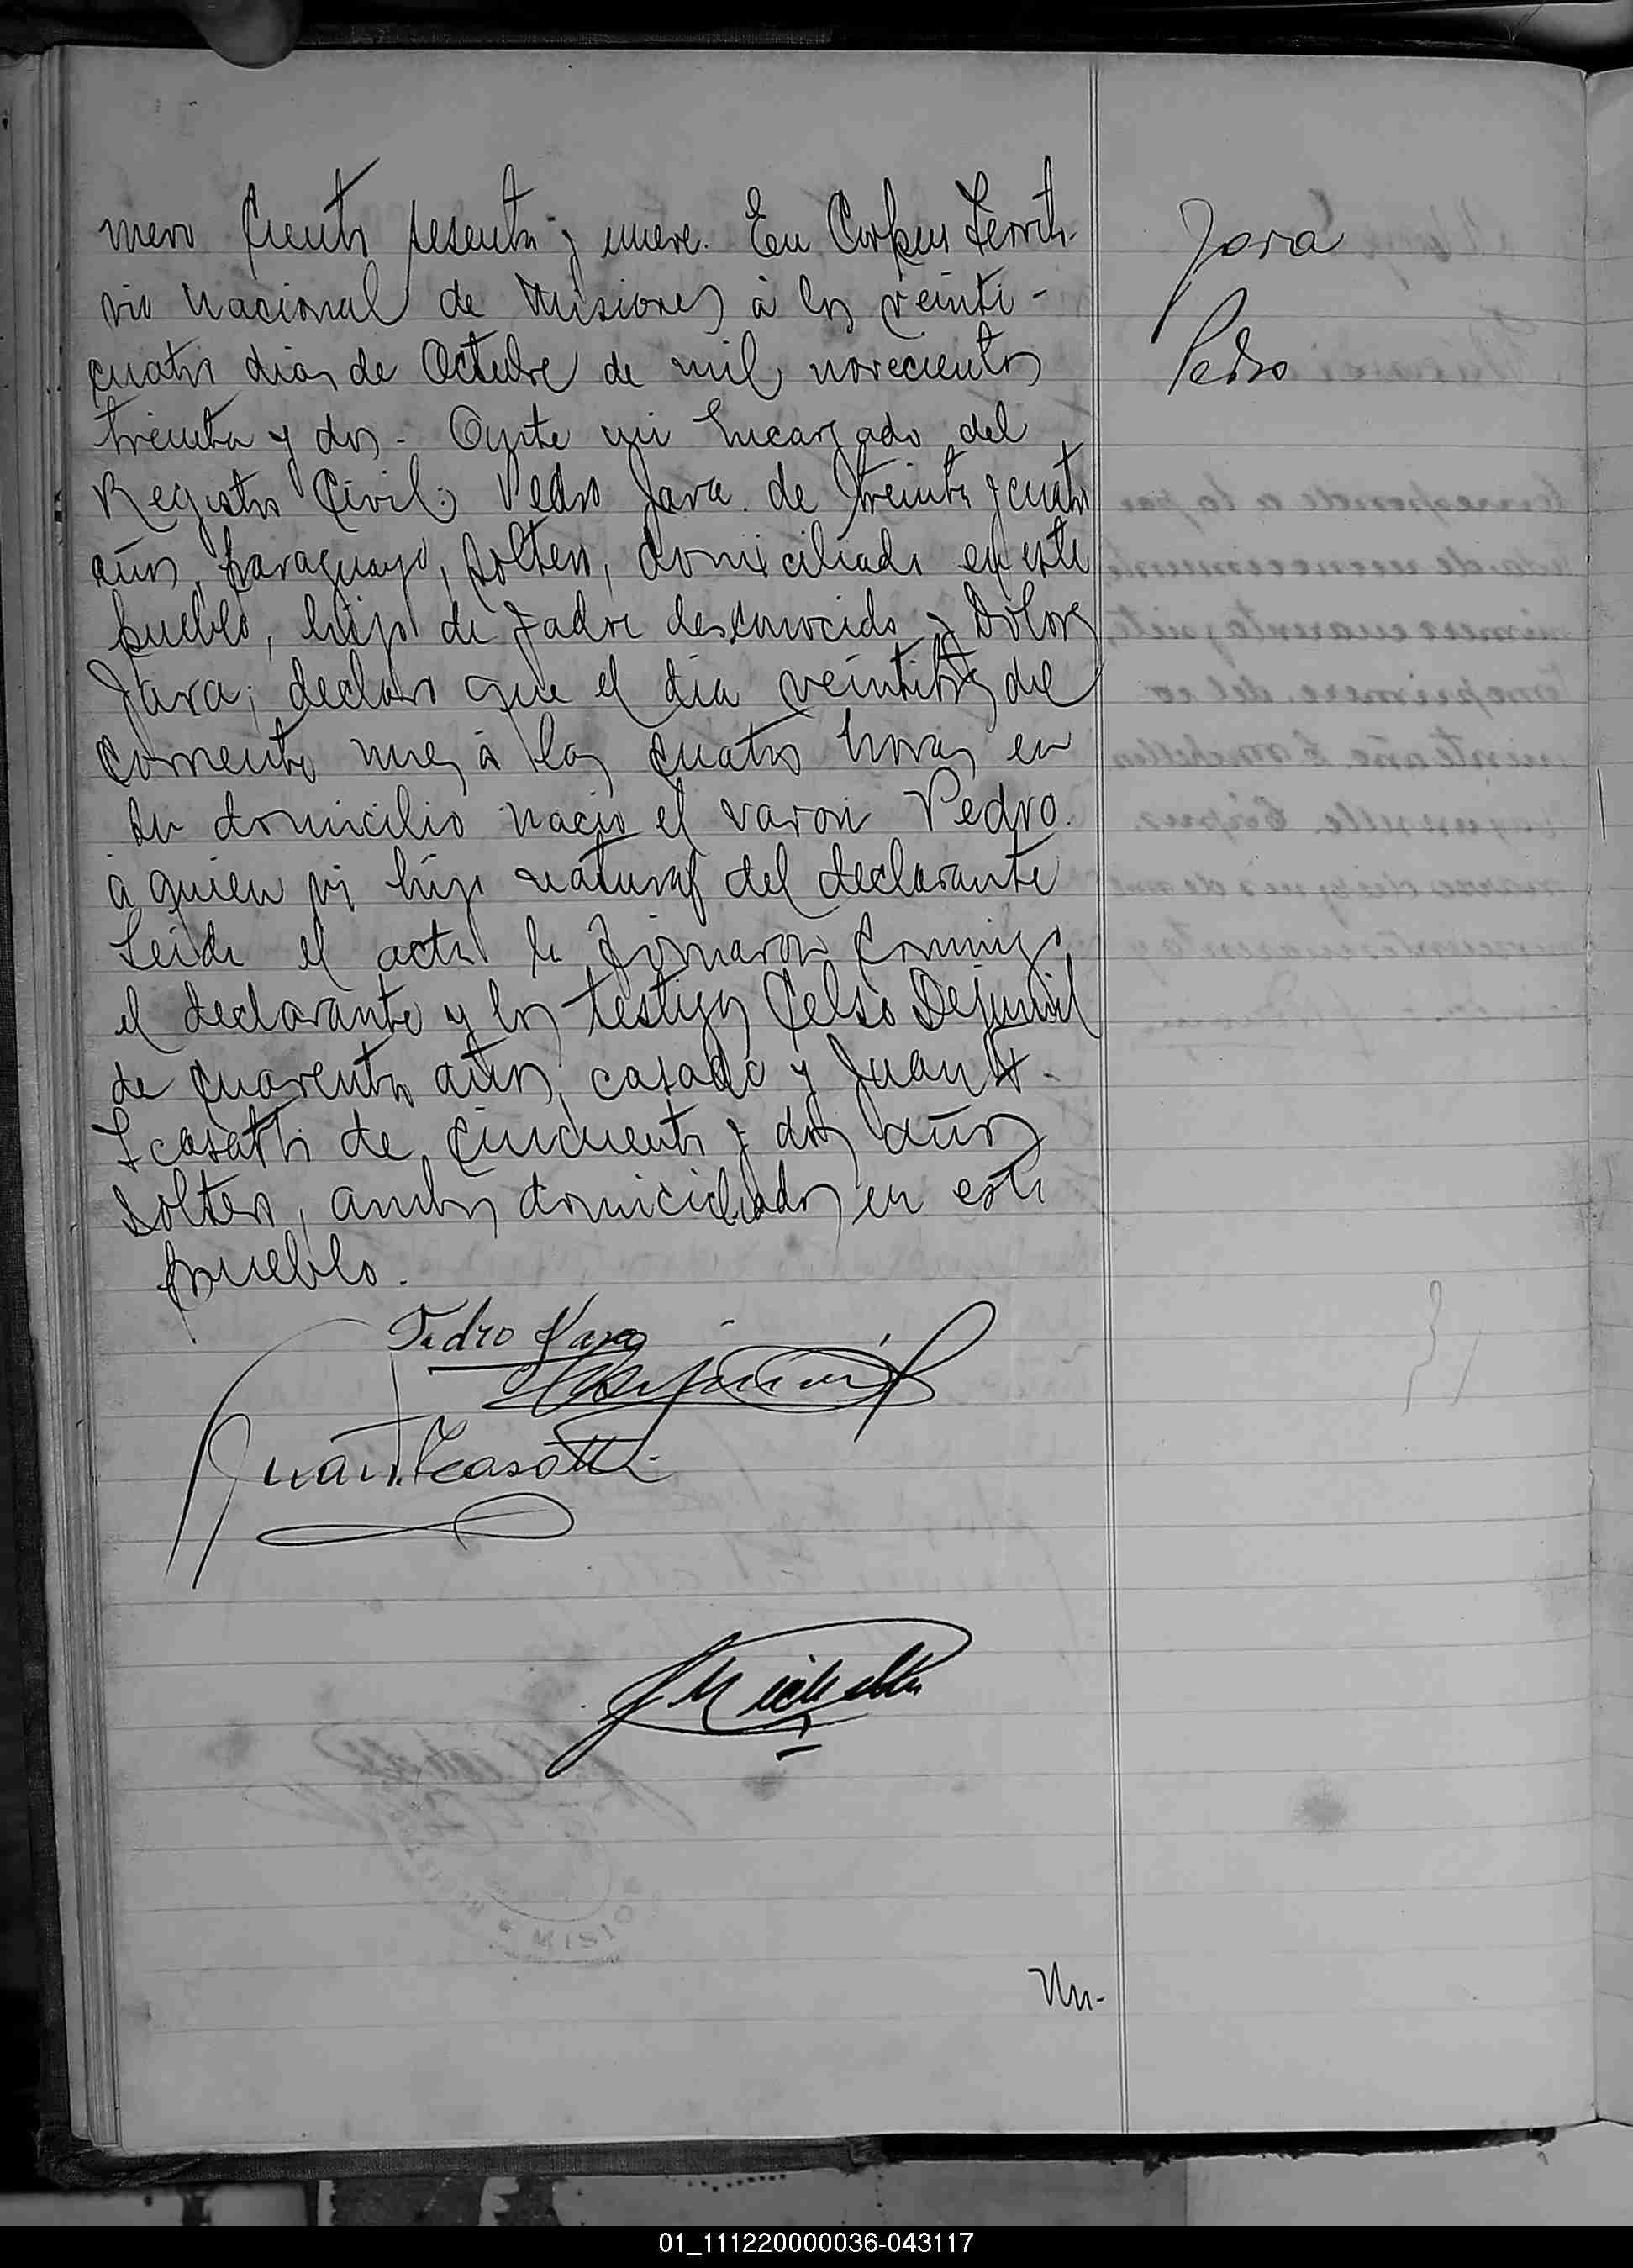 mero Ciento sesenta y nueve. En Corpus Territo-
rio Nacional de Misiones à los veinti-
cuatro dias de Octubre de mil novecientos
treinta y dos - Ante mi Encargado del
Registro Civil: Pedro Jara de treinta y cuatro
años, paraguayo, soltero, domiciliado en este
pueblo, hijo de padre desconocido y Dolores
Jara; declaro que el dia veintitres del
corriente mes à las cuatro horas en
su domicilio nacio el varon Pedro.
à quien vi hijo natural del declarante
Leida el acta la firmaron conmigo
el declarante y los testigos Celso Dejunvil
de cuarenta años, casado y Juan T.
Icasatti de cincuenta y dos años
soltero, ambos domiciliados en este
pueblo.
Pedro Jara
Juan T. Icasatti
Nu-
Jara
Pedro
MISIO
01_111220000036-043117